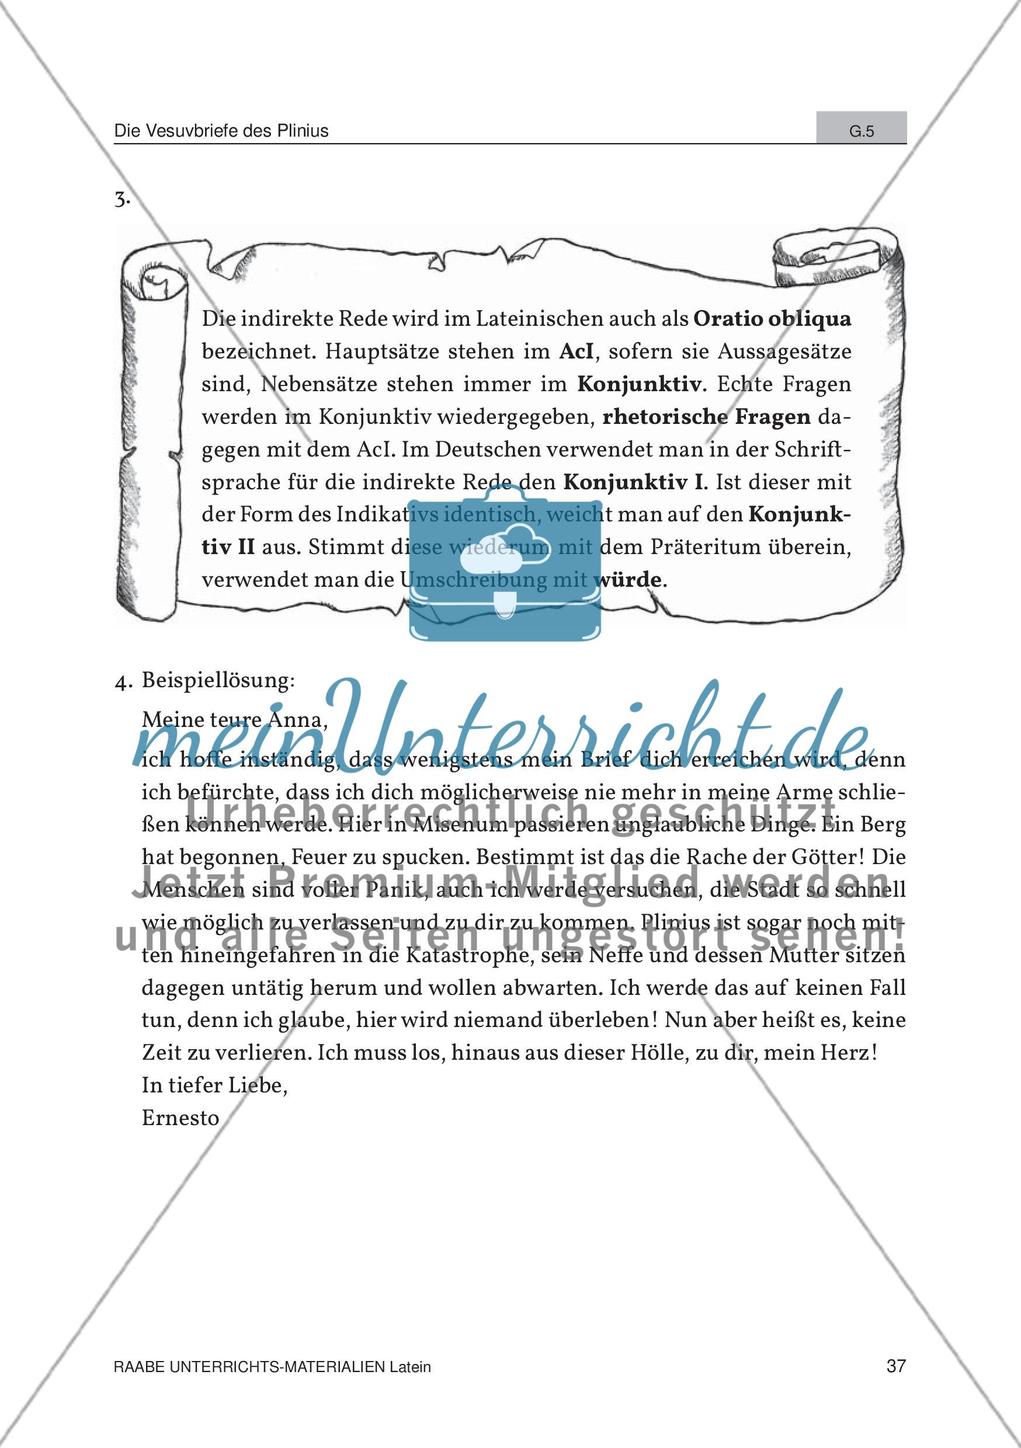 Die Vesuvbriefe des Plinius
G.5
3.
Die indirekte Rede wird im Lateinischen auch als Oratio obliqua
bezeichnet. Hauptsätze stehen im AcI, sofern sie Aussagesätze
sind, Nebensätze stehen immer im Konjunktiv. Echte Fragen
werden im Konjunktiv wiedergegeben, rhetorische Fragen da-
gegen mit dem AcI. Im Deutschen verwendet man in der Schrift-
sprache für die indirekte Rede den Konjunktiv I. Ist dieser mit
der Form des Indikativs identisch, weicht man auf den Konjunk-
tiv II aus. Stimmt diese wiederum mit dem Präteritum überein,
verwendet man die Umschreibung mit würde.
4. Beispiellösung:
Meine teure Anna,
meinUnterricht.de
ich hoffe inständig, dass wenigstens mein Brief dich erreichen wird, denn
ich befürchte, dass ich dich möglicherweise nie mehr in meine Arme schlie-
Urheberrechtlich geschützt
ßen können werde. Hier in Misenum passieren unglaubliche Dinge. Ein Berg
hat begonnen, Feuer zu spucken. Bestimmt ist das die Rache der Götter! Die
Jetzt Premium-Mitglied werden
Menschen sind voller Panik, auch ich werde versuchen, die Stadt so schnell
wie möglich zu verlassen und zu dir zu kommen. Plinius ist sogar noch mit-
und alle Seiten ungestört sehen!
ten hineingefahren in die Katastrophe, sein Neffe und dessen Mutter sitzen
dagegen untätig herum und wollen abwarten. Ich werde das auf keinen Fall
tun, denn ich glaube, hier wird niemand überleben! Nun aber heißt es, keine
Zeit zu verlieren. Ich muss los, hinaus aus dieser Hölle, zu dir, mein Herz!
In tiefer Liebe,
Ernesto
RAABE UNTERRICHTS-MATERIALIEN Latein
37